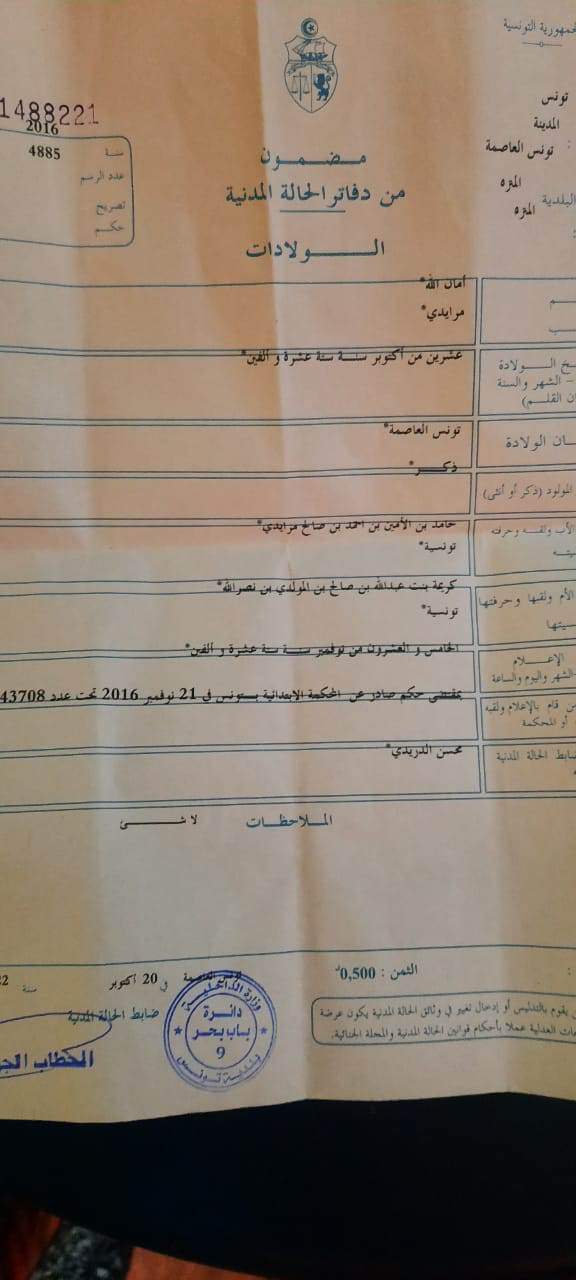 الجمهورية التونسية
تونس
المدينة
: تونس العاصمة
المنزه
البلدية
المنزه
1488221
2016
سنة
4885
عدد الرسم
تصريح
حكم
مضمون
من دفاتر الحالة المدنية
الولادات
أمان الله*
مرايدي*
عشرين من أكتوبر سنة ستة عشرة و ألفين*
الولادة
- الشهر والسنة
ان القلم)
تونس العاصمة*
ان الولادة
ذكر*
المولود (ذكر أو أنثى)
حامد بن الأمين بن احمد بن صالح مرايدي*
الأب ولقبه وحرفته
تونسية*
كريمة بنت عبدالله بن صالح بن المولدي بن نصرالله*
الأم ولقبها وحرفتها
تونسية*
سيتها
الخامس و العشرون من نوفمبر سنة ستة عشرة و ألفين*
الإعلام
الشهر واليوم والساعة
بمقتضى حكم صادر عن المحكمة الابتدائية بتونس في 21 نوفمبر 2016 تحت عدد 43708
من قام بالإعلام ولقبه
أو المحكمة
محسن الدريدي*
ضابط الحالة المدنية
الملاحظات
لا شئ
الثمن : 0,500د
تونس العاصمة في 20 أكتوبر سنة
ضابط الحالة المدنية
من يقوم بالتدليس أو إدخال تغيير في وثائق الحالة المدنية يكون عرضة
العدلية عملا بأحكام قوانين الحالة المدنية والمجلة الجنائية.
وزارة الداخلية
دائرة
باب بحر
9
بلدية تونس